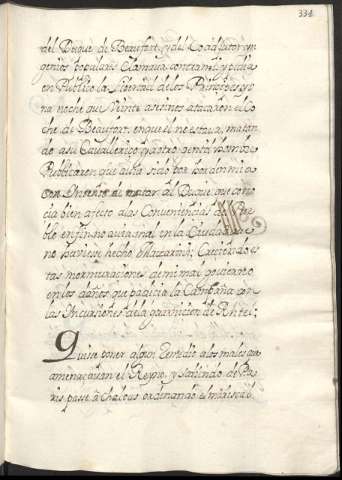 334
del Duque de Beaufort, y del Coadjutor, yn
genios populares Clamava contra mi, y pedia
en Publico la libertad de los Principes, yo
na noche que Veinte asesinos atacaron el Co
che de Beaufort, en que el no estava, matan
do a su Cavallerizo y
Publicaron que avia sido por horden mia
con Intento de matar al Duque que cono
cia bien afecto a las Conveniencias del Pue
blo en fin no avia mal en la Ciudad que
no huviese hecho Mazarini; Crecian es
tas mormuraciones de mi mal govierno
en los daños que padecia la Campaña con
las Incursiones de la guarnicion de Rhetel;
Quise poner algun Remedio a los males que
amenaçavan el Reyno, y saliendo de Pa
ris pase a Chalous ordenando el mariscal